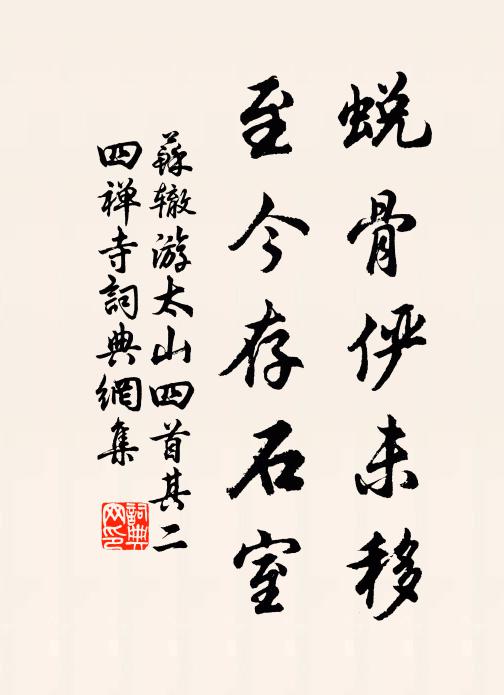 蜕骨俨未移
至今存石室
蘇辙游太山四首其二
四禅寺詞典網集
詞典網印